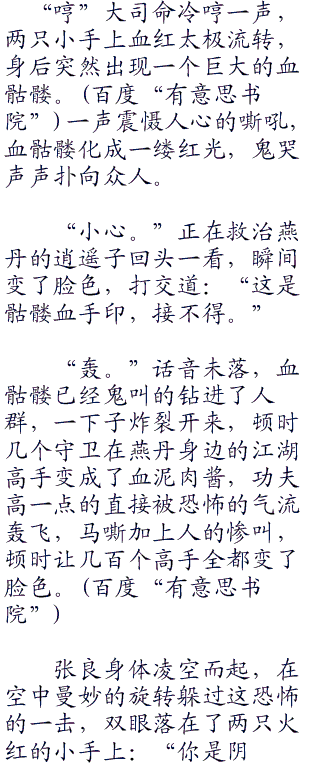 “哼”大司命冷哼一声，
两只小手上血红太极流转，
身后突然出现一个巨大的血
骷髅。(百度“有意思书
院”)一声震慑人心的嘶吼，
血骷髅化成一缕红光，鬼哭
声声扑向众人。
“小心。”正在救治燕
丹的逍遥子回头一看，瞬间
变了脸色，打交道：“这是
骷髅血手印，接不得。”
“轰。”话音未落，血
骷髅已经鬼叫的钻进了人
群，一下子炸裂开来，顿时
几个守卫在燕丹身边的江湖
高手变成了血泥肉酱，功夫
高一点的直接被恐怖的气流
轰飞，马嘶加上人的惨叫，
顿时让几百个高手全都变了
脸色。(百度“有意思书
院”)
张良身体凌空而起，在
空中曼妙的旋转躲过这恐怖
的一击，双眼落在了两只火
红的小手上：“你是阴